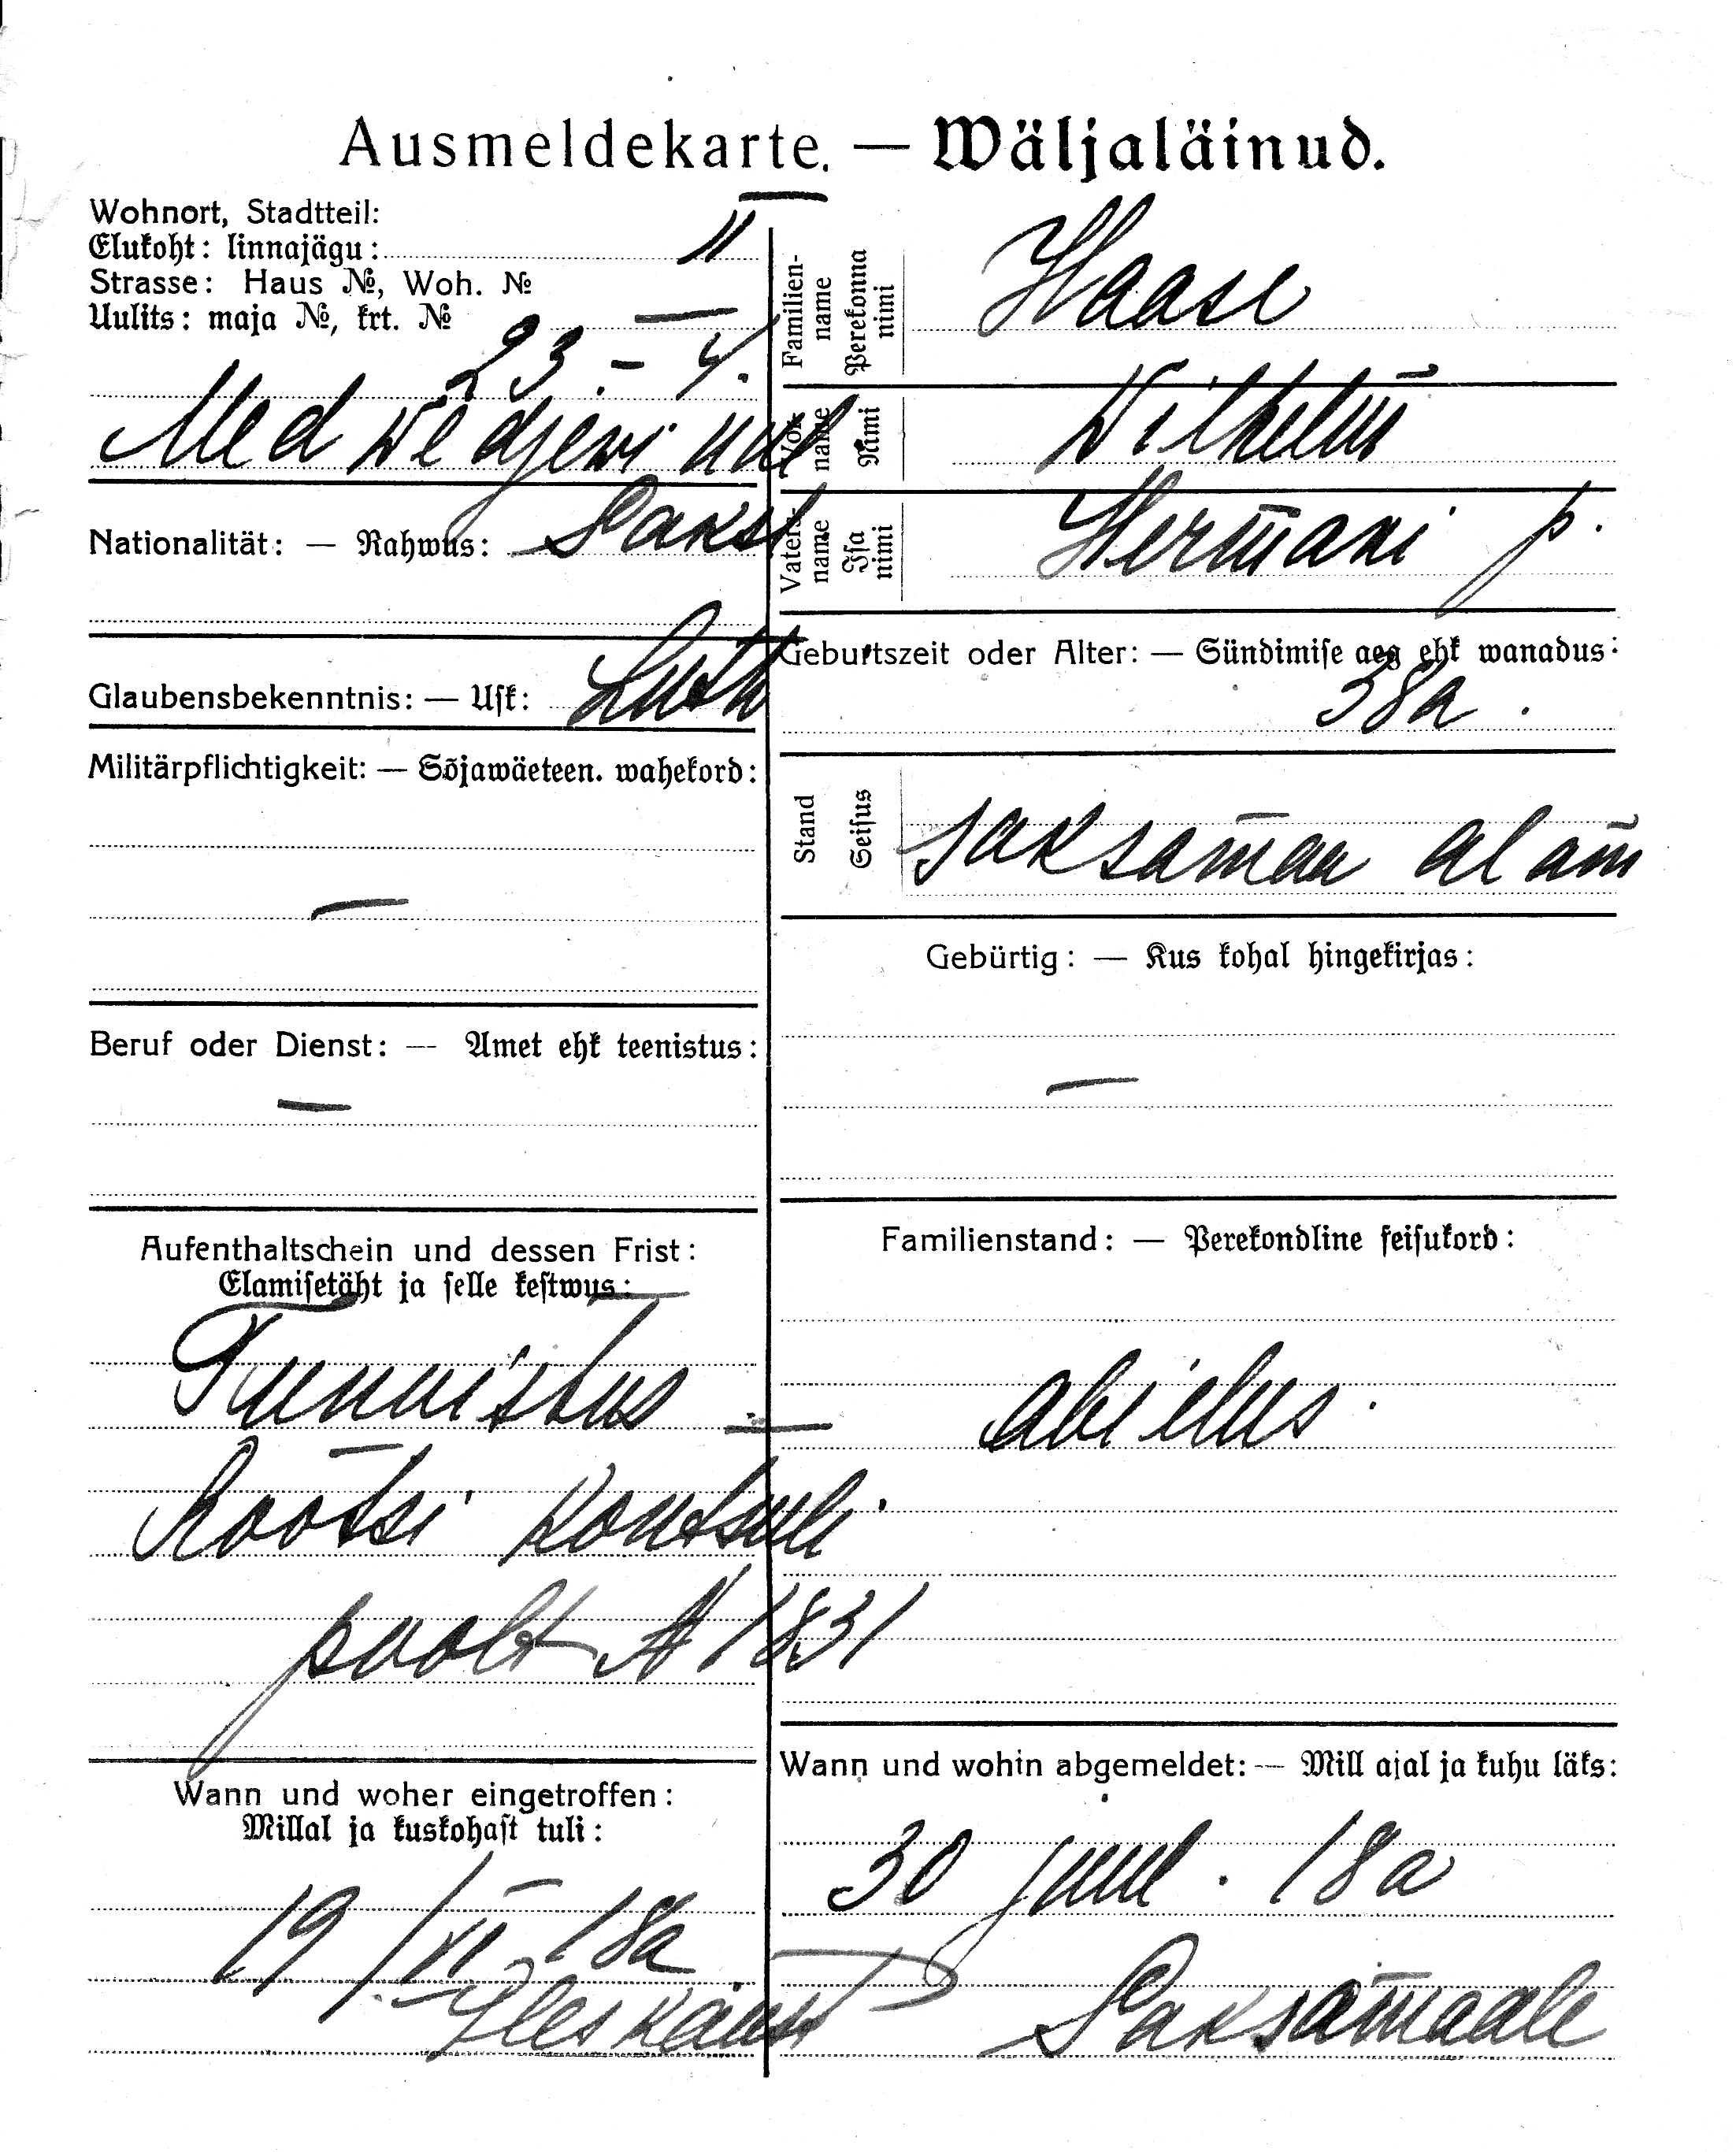 Ausmeldekarte. — Wäljaläinud.
Wohnort, Stadtteil:
Elukoht: linnajägu: II
Strasse: Haus №, Woh. №
Uulits: maja №, krt. № —
23 - 4.
Medwedjewi uul
Nationalität: — Rahwus: Saksl
Glaubensbekenntnis: — Usk: Luth
Militärpflichtigkeit: — Sõjawäeteen. wahekord:
—
Beruf oder Dienst: — Amet ehk teenistus:
—
Aufenthaltschein und dessen Frist:
Elamisetäht ja selle kestwus:
Tunnistus —
Rootsi Kontsuli
poolt № 1831
Wann und woher eingetroffen:
Millal ja kuskohast tuli:
19/VI 18a
Familien-name Perekonna nimi Haase
Vor-name Nimi Wilhelm̄
Vaters-name Isa nimi Herm̄ani p.
Geburtszeit oder Alter: — Sündimise aeg ehk wanadus:
38a.
Stand Seisus saksam̄aa alam̄
Gebürtig: — Kus kohal hingekirjas:
—
Familienstand: — Perekondline seisukord:
abielus.
Wann und wohin abgemeldet: — Mill ajal ja kuhu läks:
30 juul. 18a
Saksam̄aale